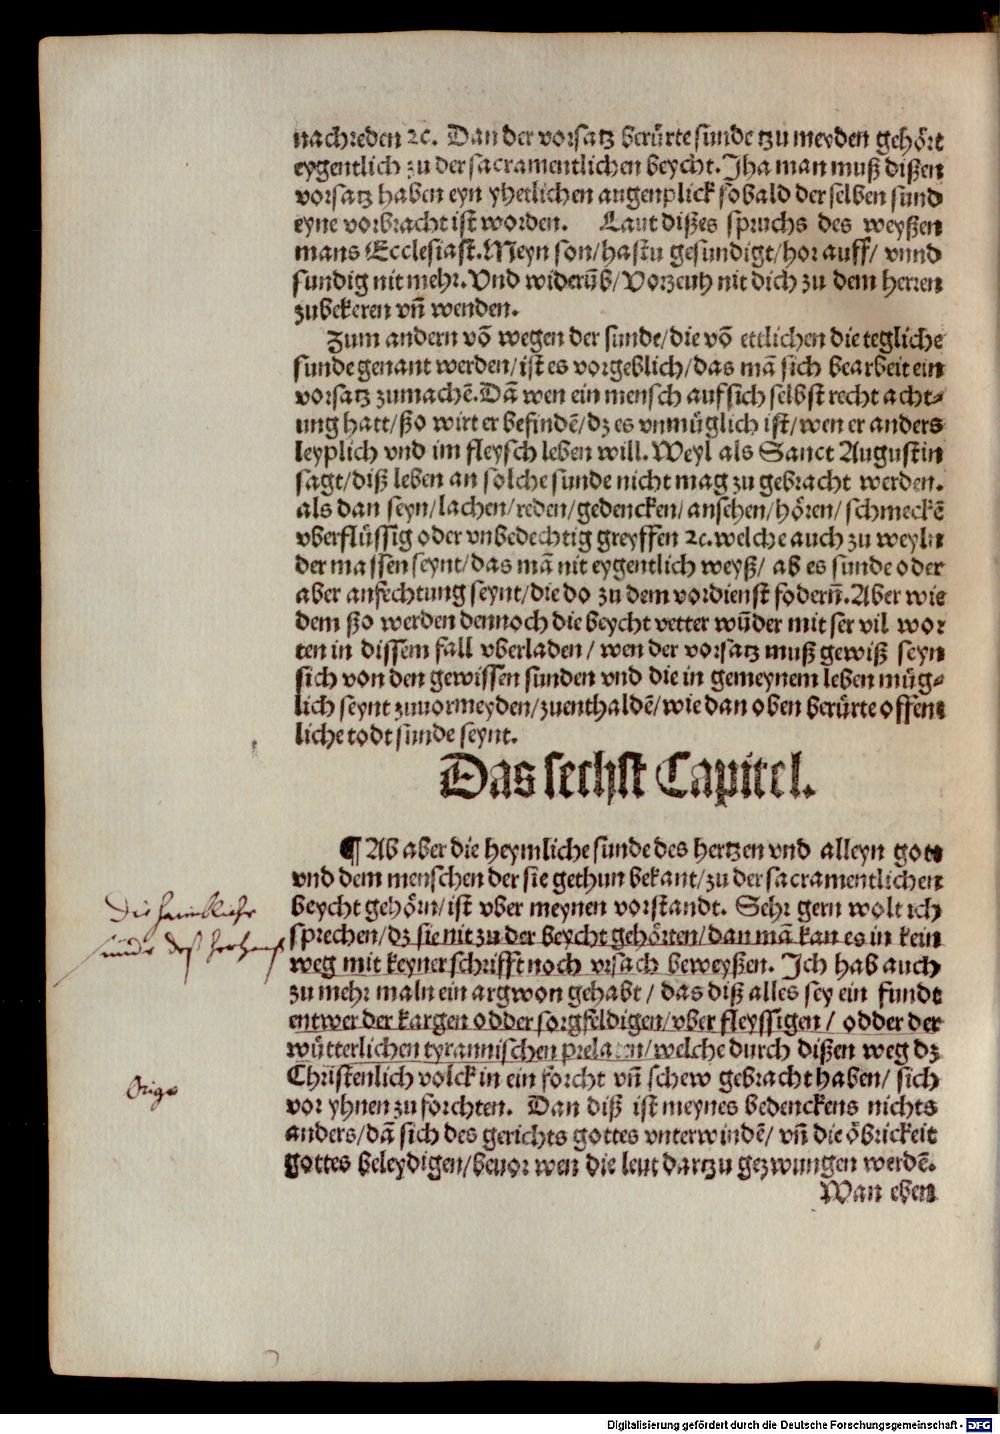 nachreden ꝛc. Dan der vorsatz berürte sunde tzu meyden gehört
eygentlich zu der sacramentlichen beycht. Jha man muß dißen
vorsatz haben eyn yhetlichen augenplick so bald der selben sund
eyne vorbracht ist worden. Laut dißes spruchs des weyßen
mans Ecclesiast. Meyn son/hastu gesundigt/hor auff/ vnnd
sundig nit mehr. Vnd widerūb/Vorzeuh nit dich zu dem herren
zubekeren vñ wenden.
Zum andern vō wegen der sunde/die vō ettlichen die tegliche
sunde genant werden/ist es vorgeblich/das mā sich bearbeit ein
vorsatz zumachē. Dā wen ein mensch auf sich selbst recht acht⸗
ung hatt/ßo wirt er befindē/dz es vnmüglich ist/wen er anders
leyplich vnd im fleysch leben will. Weyl als Sanct Augustin
sagt/diß leben an solche sunde nicht mag zu gebracht werden.
als dan seyn/lachen/reden/gedencken/ansehen/hören/schmeckē
vberflüssig oder vnbedechtig greyffen ꝛc. welche auch zu weyln
der massen seynt/das mā nit eygentlich weyß/ ab es sunde oder
aber anfechtung seynt/die do zu dem vordienst fodern̄. Aber wie
dem ßo werden dennoch die beycht vetter wūder mit ser vil wor
ten in dissem fall vberladen/ wen der vorsatz muß gewiß seyn
sich von den gewissen sunden vnd die in gemeynem leben müg⸗
lich seynt zuuormeyden/zuenthaldē/wie dan oben berürte offent
liche todt sunde seynt.
Das sechst Capitel.
¶ Ab aber die heymliche sunde des hertzen vnd alleyn gott
vnd dem menschen der sie gethun bekant/zu der sacramentlichen
beycht gehörn/ist vber meynen vorstandt. Sehr gern wolt ich
sprechen/dz sie nit zu der beycht gehörten/dan mā kan es in kein
weg mit keyner schrifft noch vrsach beweyßen. Ich hab auch
zu mehr maln ein argwon gehabt/ das diß alles sey ein fundt
entwer der kargen odder sorgfeldigen/vber fleyssigen/ odder der
wütterlichen tyrannischen prelaten/welche durch dißen weg dz
Christenlich volck in ein forcht vñ schew gebracht haben/ sich
vor yhnen zu forchten. Dan diß ist meynes bedenckens nichts
anders/dā sich des gerichts gottes vnterwindē/ vñ die öbrickeit
gottes beleydigen/beuor wen die leut dartzu gezwungen werdē.
Wan eben
Die haimbliche
sünde deß herzens
Digitalisierung gefördert durch die Deutsche Forschungsgemeinschaft - DFG